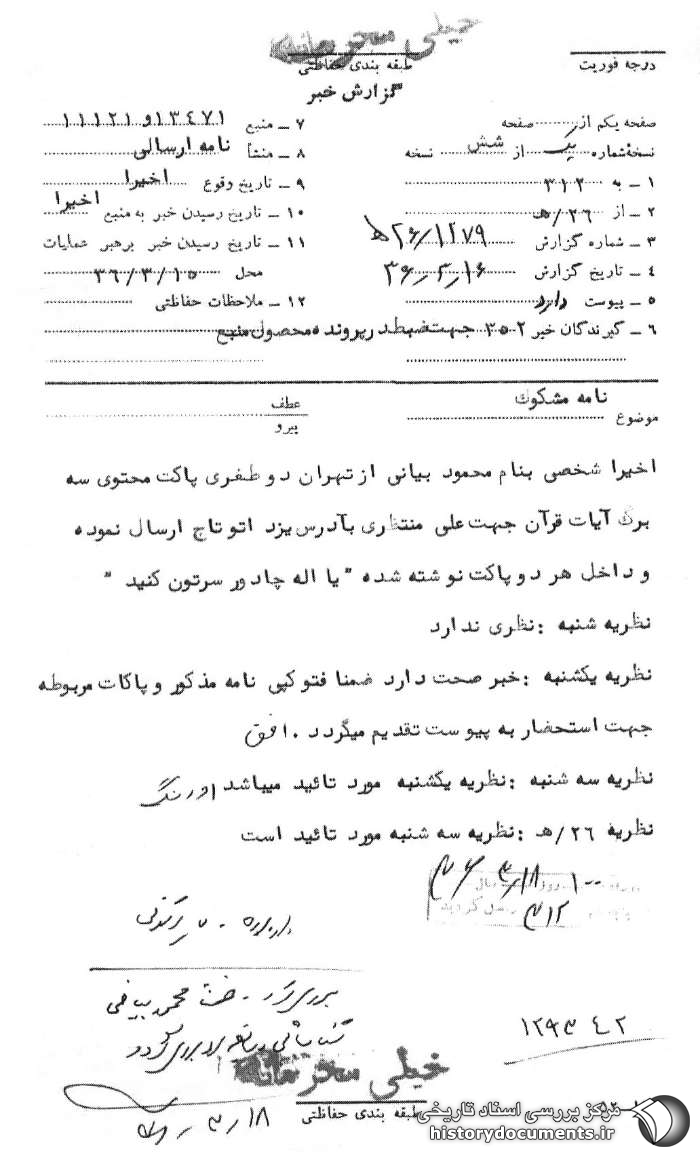 خیلی محرمانه
طبقه بندی حفاظتی
درجه فوریت
گزارش خبر
صفحه یکم از صفحه
نسخه شماره یک از شش نسخه
۱ ـ به ۳۱۲
۲ ـ از ۲۶/هـ
۳ ـ شماره گزارش ۲۶/۱۲۷۹هـ
۴ ـ تاریخ گزارش ۳۶/۳/۱۶
۵ ـ پیوست دارد
۶ ـ گیرندگان خبر ۳۰۲ جهت ضبط در پرونده محصول منبع
۷ ـ منبع ۱۳۴۷۱ و ۱۱۱۲۱
۸ ـ منشأ نامه ارسالی
۹ ـ تاریخ وقوع اخیرا
۱۰ ـ تاریخ رسیدن خبر به منبع اخیرا
۱۱ ـ تاریخ رسیدن خبر برهبر عملیات
محل ۳۶/۳/۱۵
۱۲ ـ ملاحظات حفاظتی
موضوع نامه مشکوک
عطف
پیرو
اخیرا شخصی بنام محمود بیانی از تهران دو طغری پاکت محتوی سه
برگ آیات قرآن جهت علی منتظری بآدرس یزد اتو تاج ارسال نموده
و داخل هر دو پاکت نوشته شده "یا اله چادور سرتون کنید "
نظریه شنبه :نظری ندارد
نظریه یکشنبه :خبر صحت دارد ضمنا فتوکپی نامه مذکور و پاکات مربوطه
جهت استحضار به پیوست تقدیم میگردد . افق
نظریه سه شنبه :نظریه یکشنبه مورد تائید میباشد اورنگ
نظریه ۲۶/هـ :نظریه سه شنبه مورد تائید است
۳/۱۸
۳۱۲
۱۲۹۳۴۲
خیلی محرمانه
طبقه بندی حفاظتی
۳/۱۸
مرکز بررسی اسناد تاریخی
historydocuments.ir